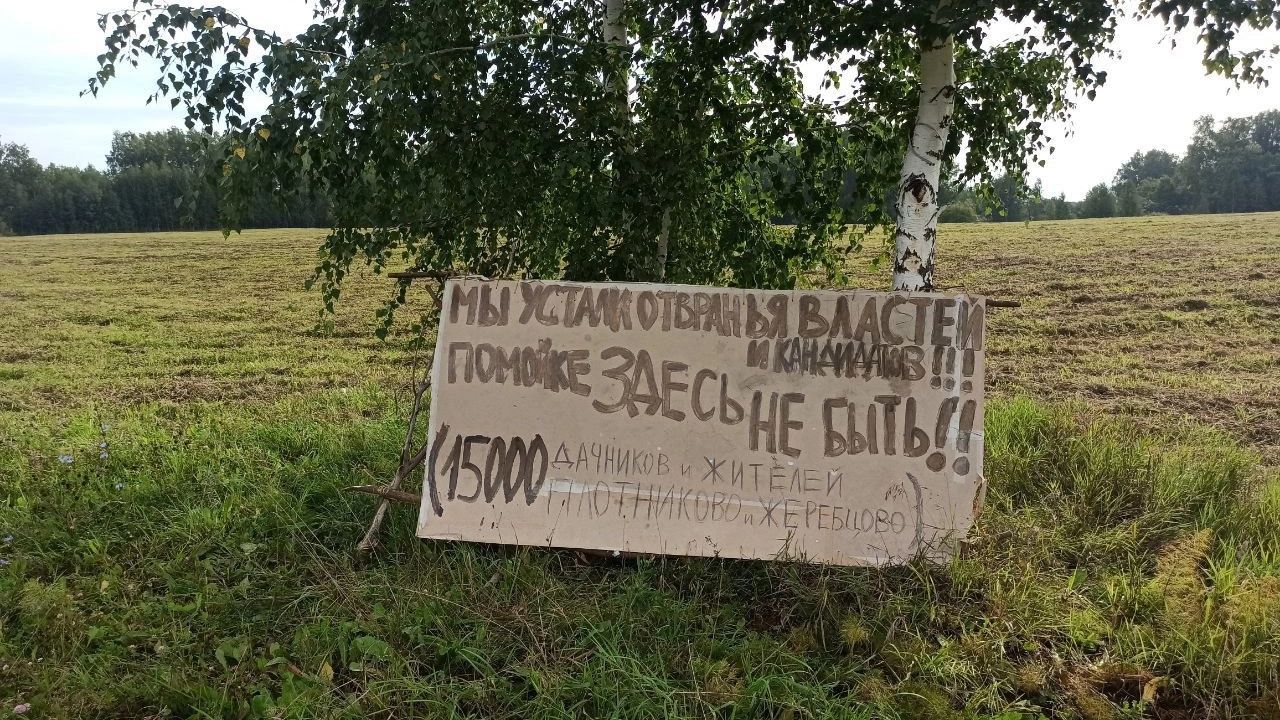 МЫ УСТАЛИ ОТ ВРАНЬЯ ВЛАСТЕЙ
И КАНДИДАТОВ!!!
ПОМОЙКЕ ЗДЕСЬ НЕ БЫТЬ!!
(15000 ДАЧНИКОВ и ЖИТЕЛЕЙ
ПЛОТНИКОВО и ЖЕРЕБЦОВО)